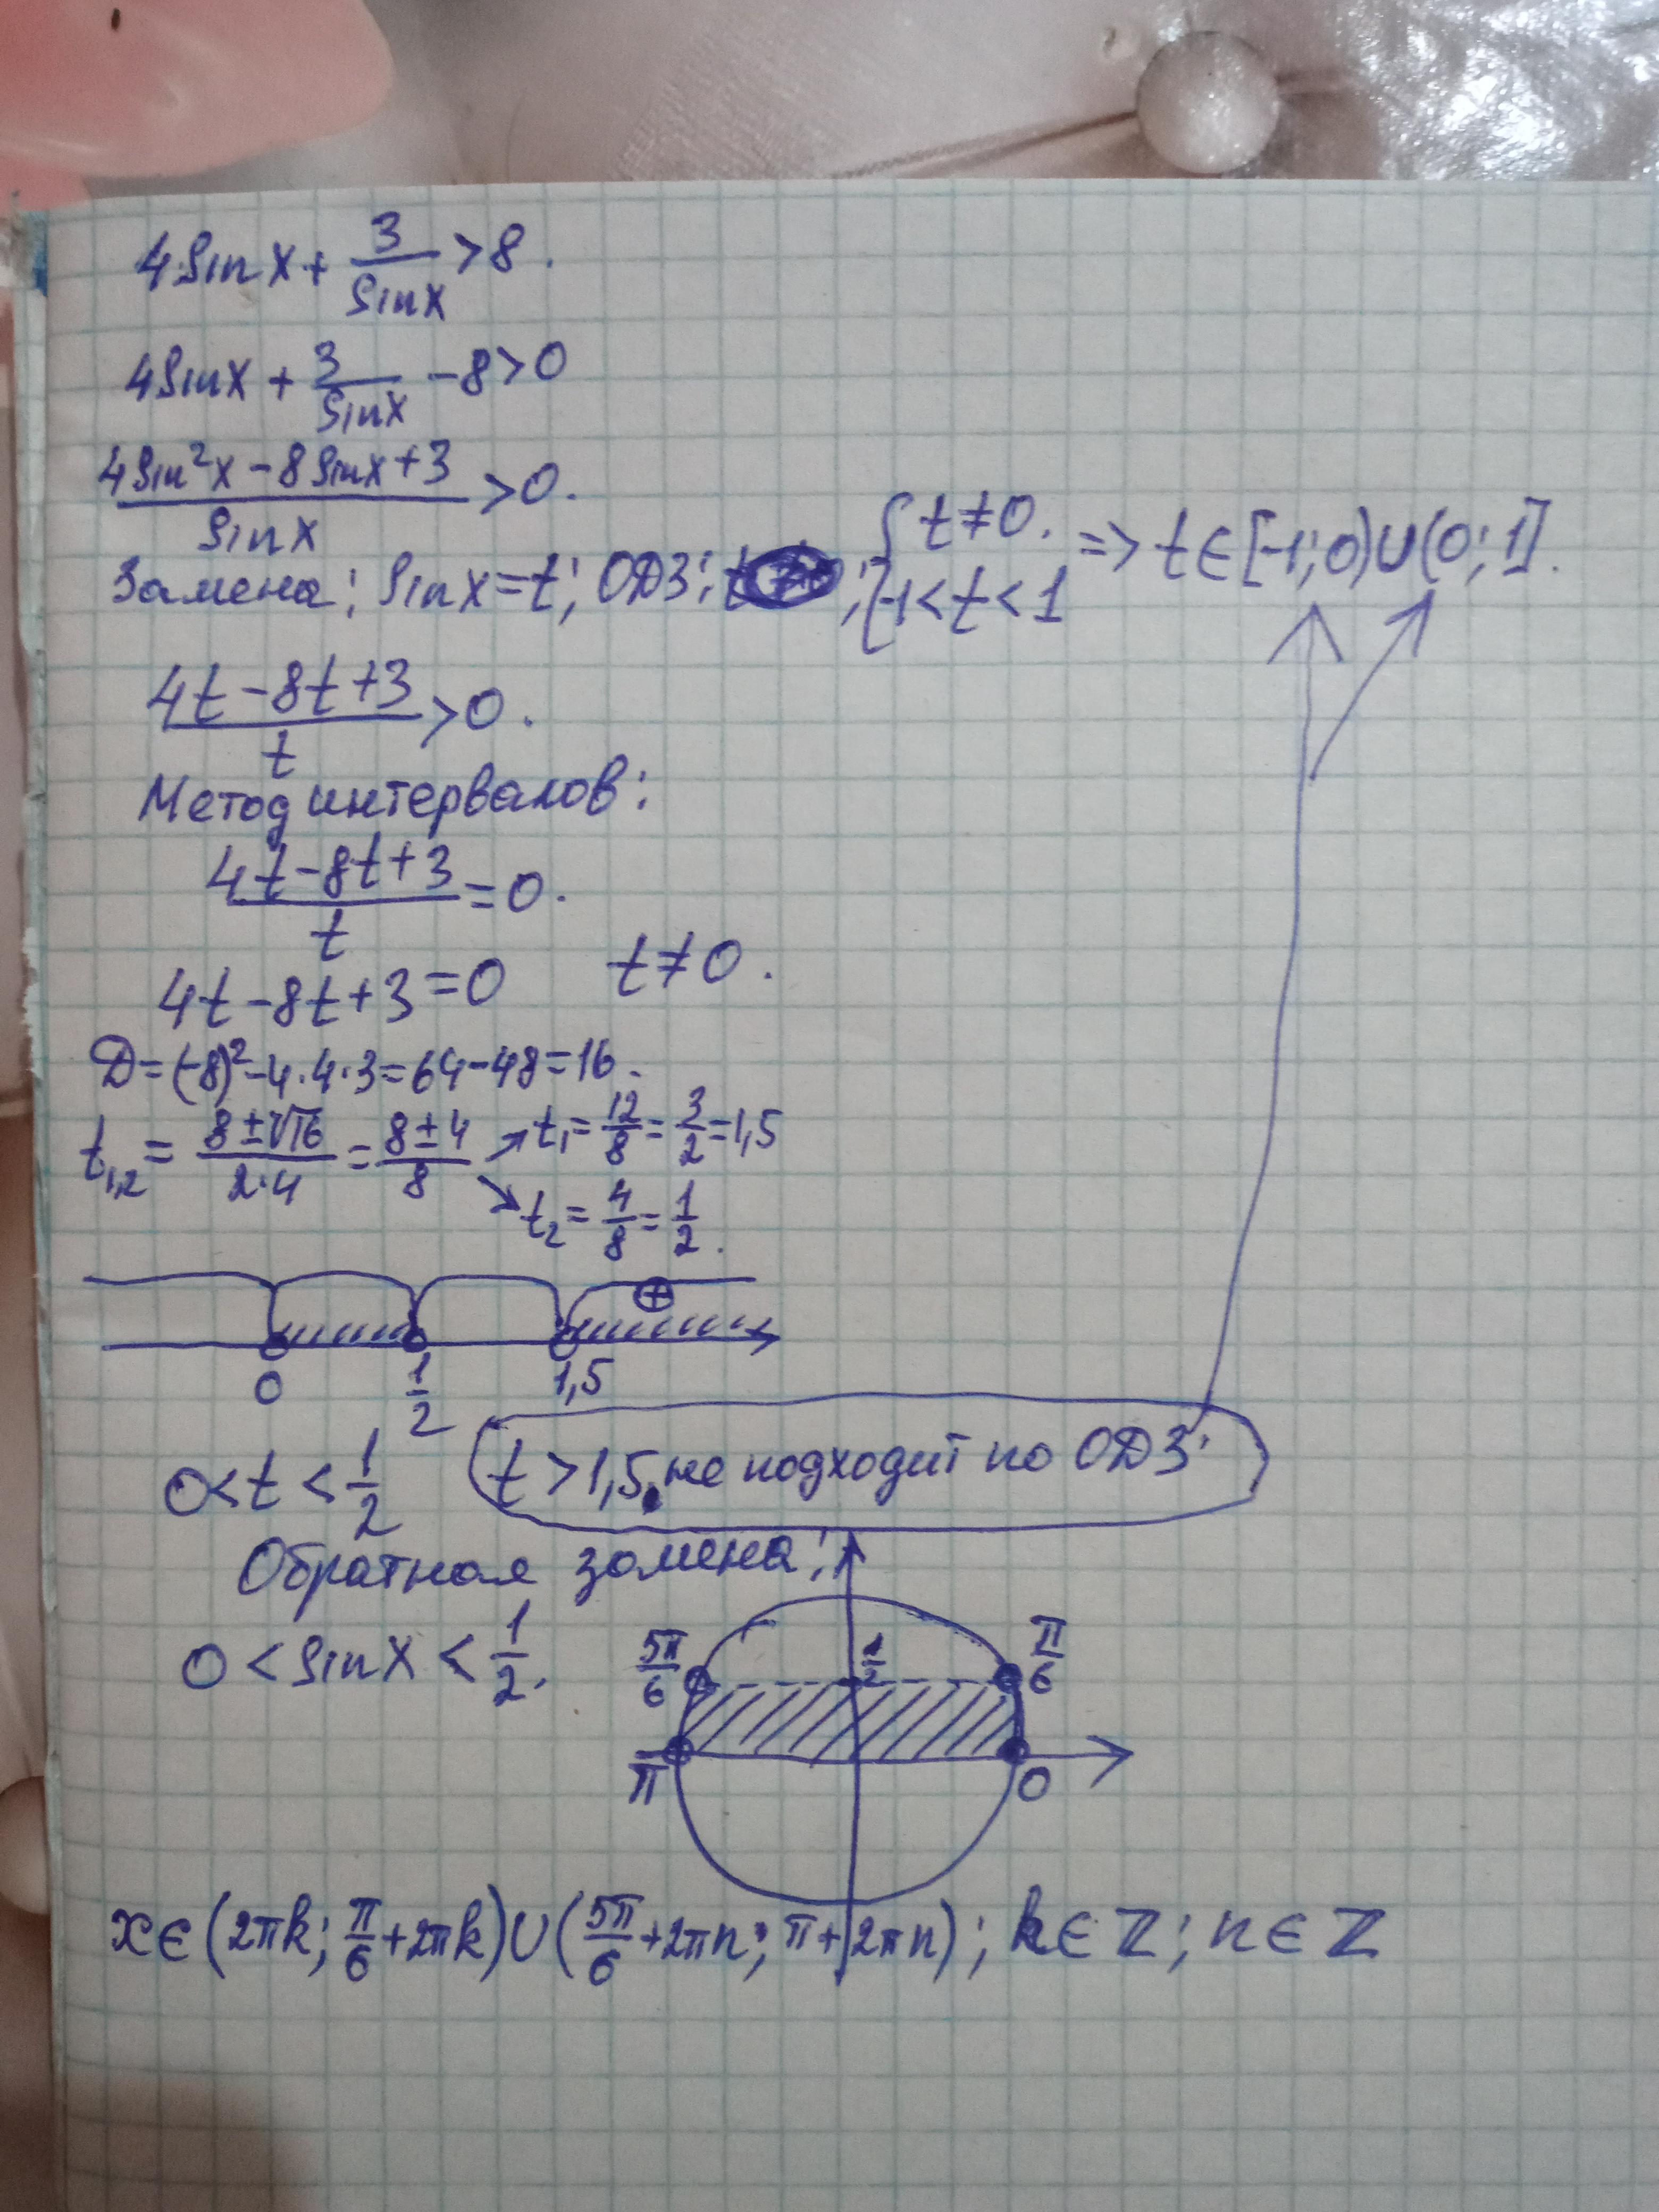 4sinx + 3/sinx > 8.
4sinx + 3/sinx - 8 > 0
(4sin²x - 8sinx + 3)/sinx > 0.
Замена: sinx = t; ОДЗ: ; { t ≠ 0. -1 < t < 1 => t ∈ [-1; 0) ∪ (0; 1].
(4t - 8t + 3)/t > 0.
Метод интервалов:
(4t - 8t + 3)/t = 0.
4t - 8t + 3 = 0 t ≠ 0.
D = (-8)² - 4·4·3 = 64 - 48 = 16.
t₁,₂ = (8 ± √16)/(2·4) = (8 ± 4)/8 → t₁ = 12/8 = 3/2 = 1,5
↘ t₂ = 4/8 = 1/2.
+
0 1/2 1,5
0 < t < 1/2 t > 1,5, не подходит по ОДЗ.
Обратная замена:
0 < sinx < 1/2.
5π/6 1/2 π/6
π 0
x ∈ (2πk; π/6 + 2πk) ∪ (5π/6 + 2πn; π + 2πn); k ∈ ℤ; n ∈ ℤ